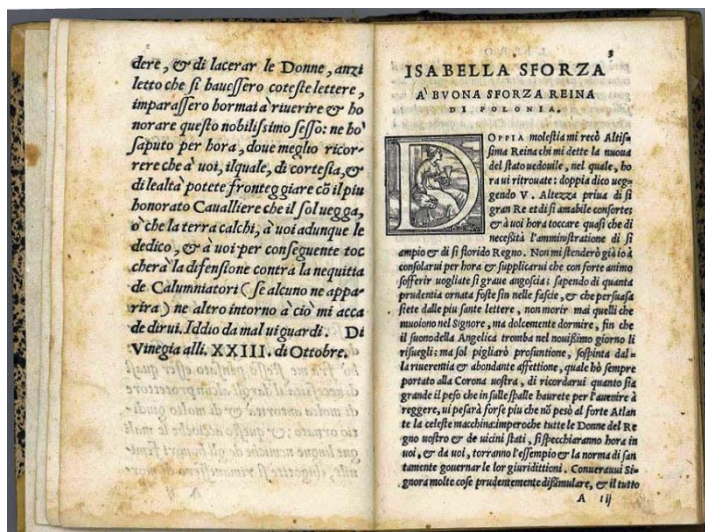 dere, & di lacerar le Donne, anzi
letto che si hauessero coteste lettere,
imparassero hormai à riuerire & ho
norare questo nobilissimo sesso: ne hò
saputo per hora, doue meglio ricor-
rere che à uoi, ilquale, di cortesia, &
di lealtà potete fronteggiare cō il piu
honorato Caualliere che il sol uegga,
ò che la terra calchi, à uoi adunque le
dedico, & à uoi per conseguente toc
cherà la difensione contra la nequitia
de Calumniatori (se alcuno ne appa-
rira) ne altro intorno à ciò mi acca
de dirui. Iddio da mal ui guardi. Di
Vinegia alli. XXIII. di Ottobre.
3
ISABELLA SFORZA
A' BVONA SFORZA REINA
DI POLONIA.
DOPPIA molestia mi recò Altis-
sima Reina chi mi dette la nuoua
del stato uedouile, nel quale, ho
ra ui ritrouate: doppia dico ueg-
gendo V. Altezza priua di sì
gran Re et di sì amabile consorte;
& à uoi hora toccare quasi che di
necessità l'amministratione di sì
ampio & di sì florido Regno. Non mi stenderò già io à
consolarui per hora & supplicarui che con forte animo
sofferir uogliate sì graue angoscia; sapendo di quanta
prudentia ornata foste sin nelle fascie, & che persuasa
siete dalle piu sante lettere, non morir mai quelli che
muoiono nel Signore, ma dolcemente dormire, fin che
il suono della Angelica tromba nel nouissimo giorno li
risuegli; ma sol pigliarò prosuntione, sospinta dal-
la riuerentia & abondante affettione, quale hò sempre
portato alla Corona uostra, di ricordarui quanto sia
grande il peso che in sulle spalle haurete per l'auenire à
reggere, ui pesarà forse piu che nō pesò al forte Atlan
te la celeste macchina: imperoche tutte le Donne del Re
gno uostro & de uicini stati, si specchiaranno hora in
uoi, & da uoi, torranno l'essempio & la norma di san
tamente gouernar le lor giuriditioni. Conuerauui Si-
gnora molte cose prudentemente dissimulare, & il tutto
A iij